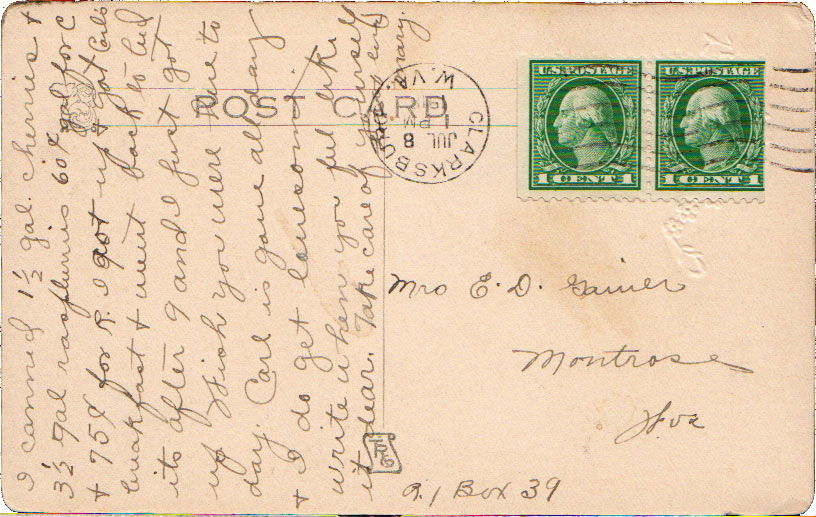 I canned 1½ gal. cherries +
3½ gal raspberries 60¢ gal for C
+ 75¢ for R. I got up + got Carls
breakfast + went back to bed
its after 9 and I just got
up Wish you were here to
day. Carl is gone all day
+ I do get lonesome.
write when you feel like
it dear. Take care of yourself
Mary.
POST CARD
CLARKSBURG
W. VA.
JUL 8
1 PM
U.S. POSTAGE
1 CENT 1
U.S. POSTAGE
1 CENT 1
Mrs E. D. Gainer
Montrose
W va
R. 1 Box 39